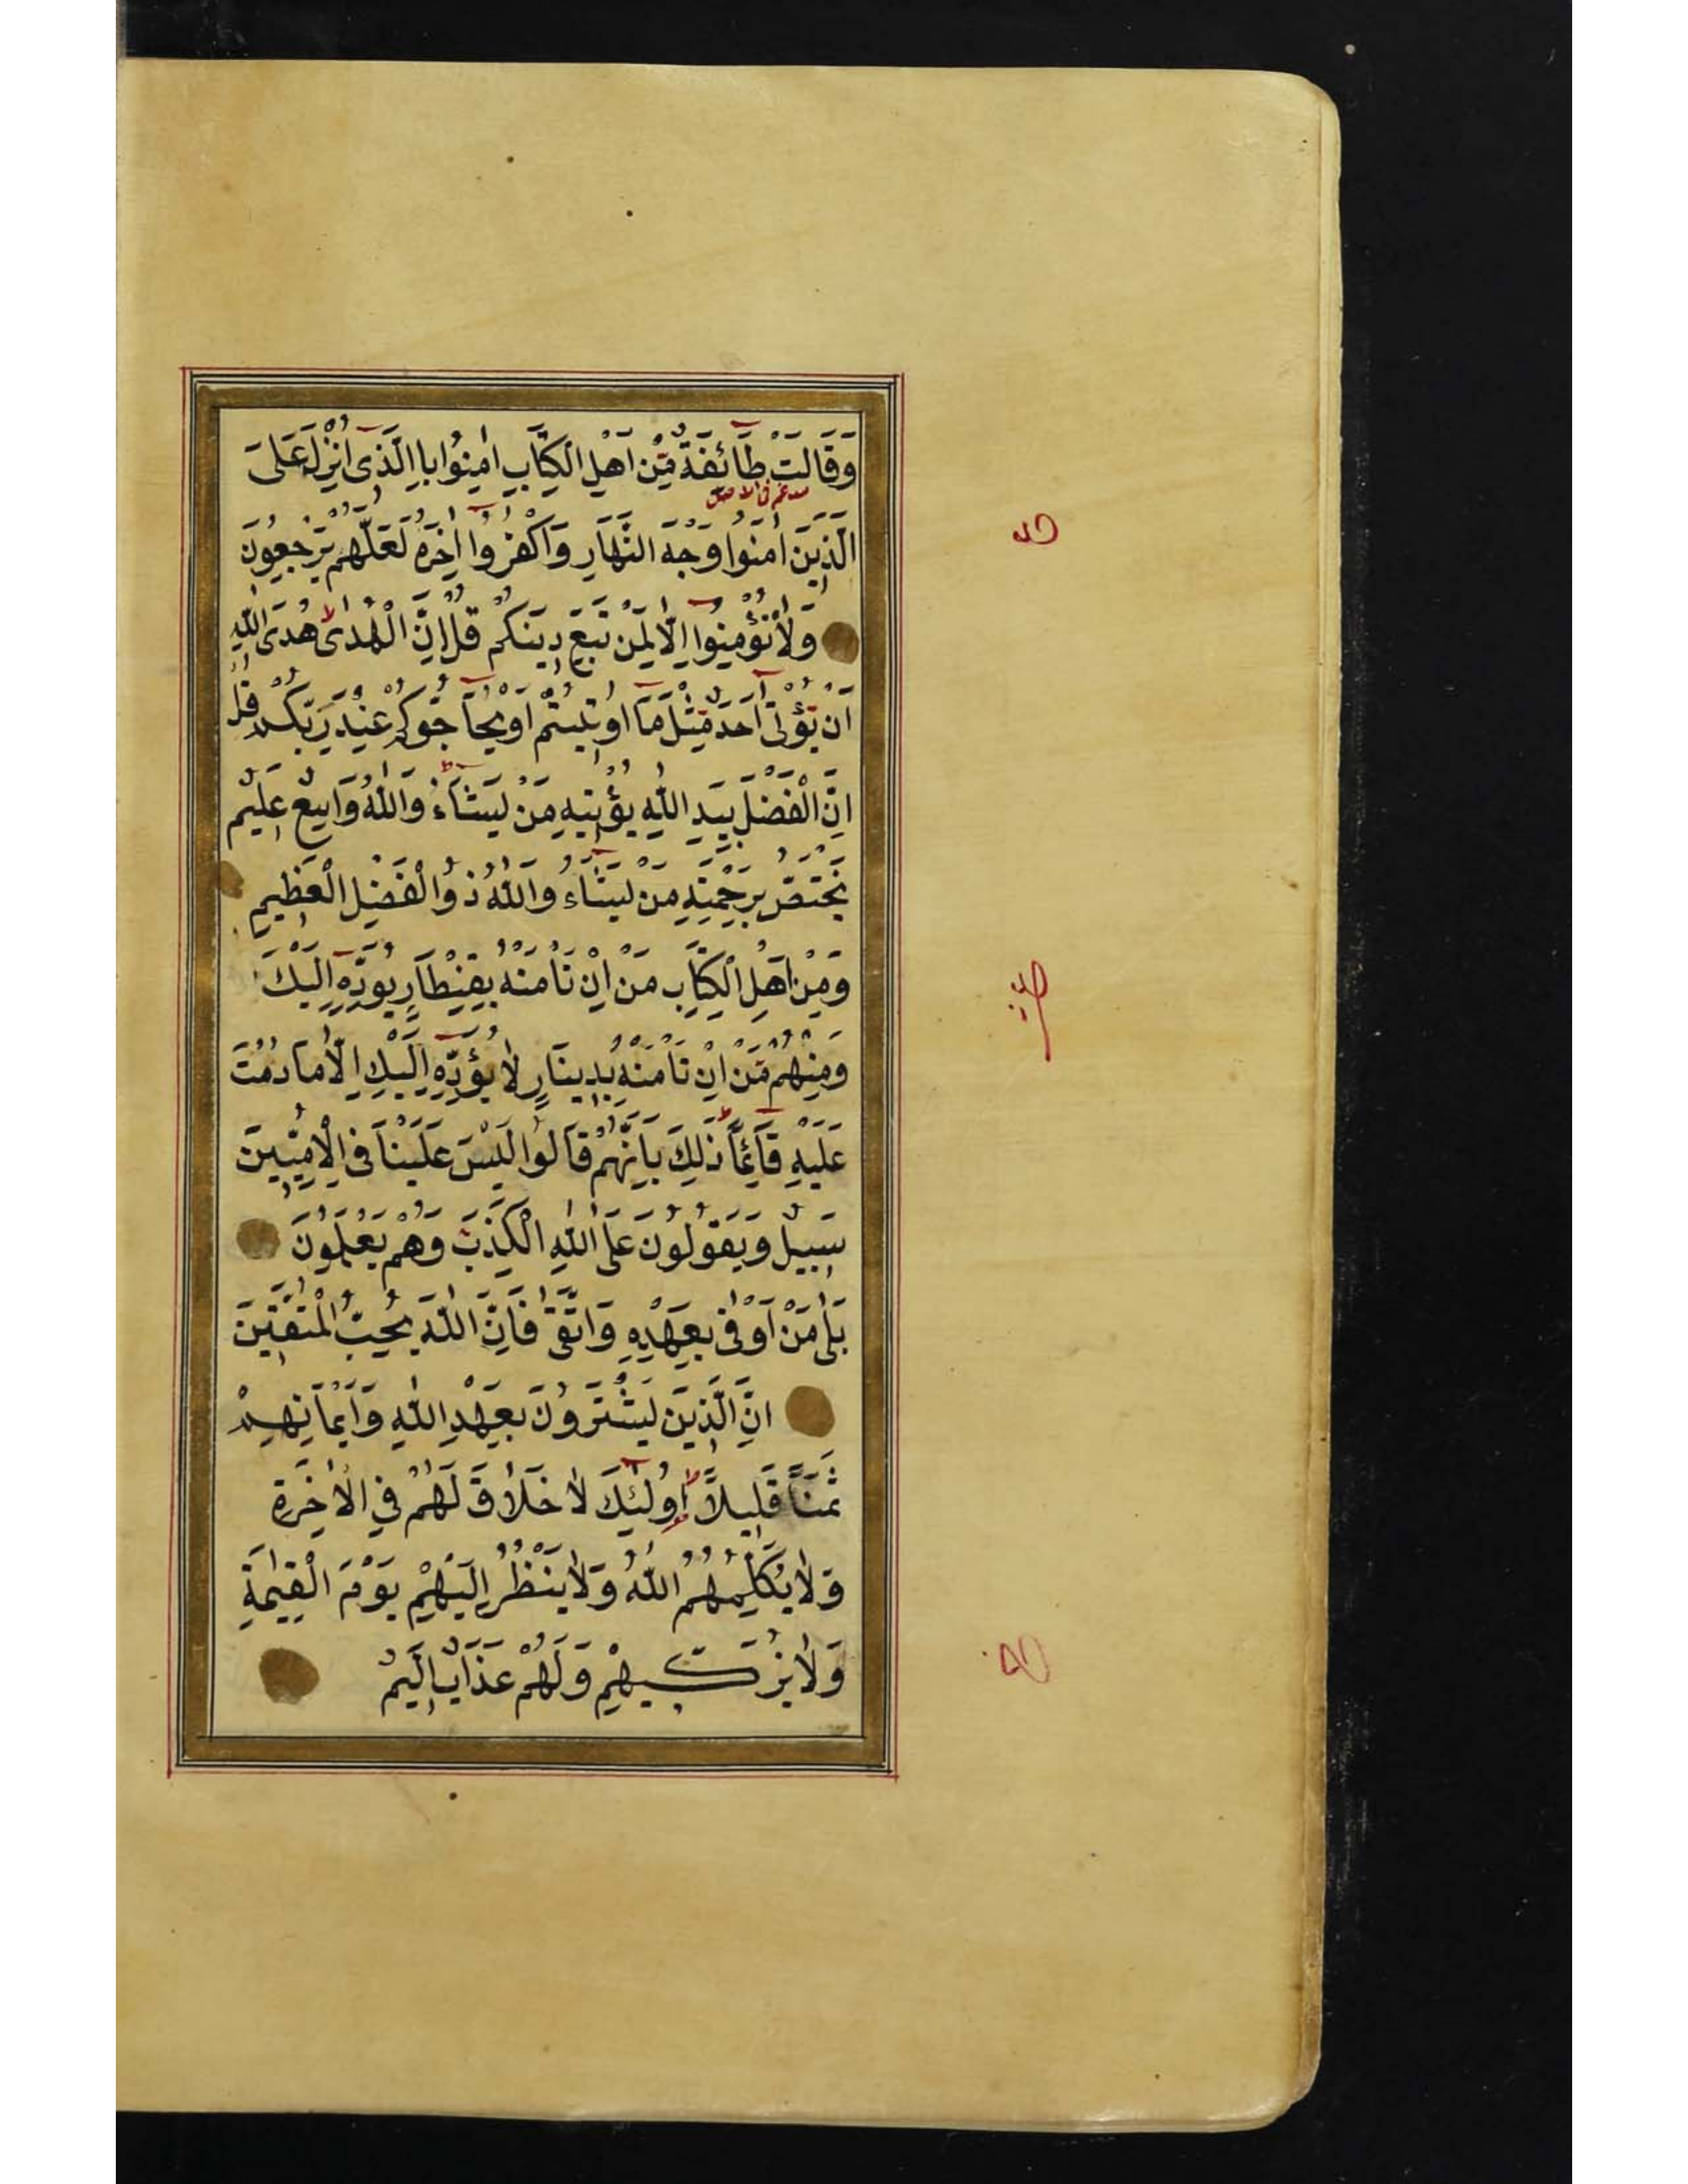 وَقَالَتْ طَآئِفَةٌ مِّنْ اَهْلِ الْكِتَابِ اٰمِنُوا بِالَّذٖى اُنْزِلَ عَلَى
الَّذٖينَ اٰمَنُوا وَجْهَ النَّهَارِ وَاكْفُرُوا اٰخِرَهُ لَعَلَّهُمْ يَرْجِعُونَ
وَلَا تُؤْمِنُوا اِلَّا لِمَنْ تَبِعَ دٖينَكُمْ قُلْ اِنَّ الْهُدٰى هُدَى اللّٰهِ
اَنْ يُؤْتٰى اَحَدٌ مِّثْلَ مَا اُوتٖيتُمْ اَوْ يُحَآجُّوكُمْ عِنْدَ رَبِّكُمْ قُلْ
اِنَّ الْفَضْلَ بِيَدِ اللّٰهِ يُؤْتٖيهِ مَنْ يَشَآءُ وَاللّٰهُ وَاسِعٌ عَلٖيمٌ
يَخْتَصُّ بِرَحْمَتِهِ مَنْ يَشَآءُ وَاللّٰهُ ذُو الْفَضْلِ الْعَظٖيمِ
وَمِنْ اَهْلِ الْكِتَابِ مَنْ اِنْ تَأْمَنْهُ بِقِنْطَارٍ يُؤَدِّهِ اِلَيْكَ
وَمِنْهُمْ مَّنْ اِنْ تَأْمَنْهُ بِدٖينَارٍ لَا يُؤَدِّهِ اِلَيْكَ اِلَّا مَا دُمْتَ
عَلَيْهِ قَآئِمًا ذٰلِكَ بِاَنَّهُمْ قَالُوا لَيْسَ عَلَيْنَا فِى الْاُمِّيّٖينَ
سَبٖيلٌ وَيَقُولُونَ عَلَى اللّٰهِ الْكَذِبَ وَهُمْ يَعْلَمُونَ
بَلٰى مَنْ اَوْفٰى بِعَهْدِهِ وَاتَّقٰى فَاِنَّ اللّٰهَ يُحِبُّ الْمُتَّقٖينَ
اِنَّ الَّذٖينَ يَشْتَرُونَ بِعَهْدِ اللّٰهِ وَاَيْمَانِهِمْ
ثَمَنًا قَلٖيلًا اُولٰئِكَ لَا خَلَاقَ لَهُمْ فِي الْاٰخِرَةِ
وَلَا يُكَلِّمُهُمُ اللّٰهُ وَلَا يَنْظُرُ اِلَيْهِمْ يَوْمَ الْقِيٰمَةِ
وَلَا يُزَكّٖيهِمْ وَلَهُمْ عَذَابٌ اَلٖيمٌ